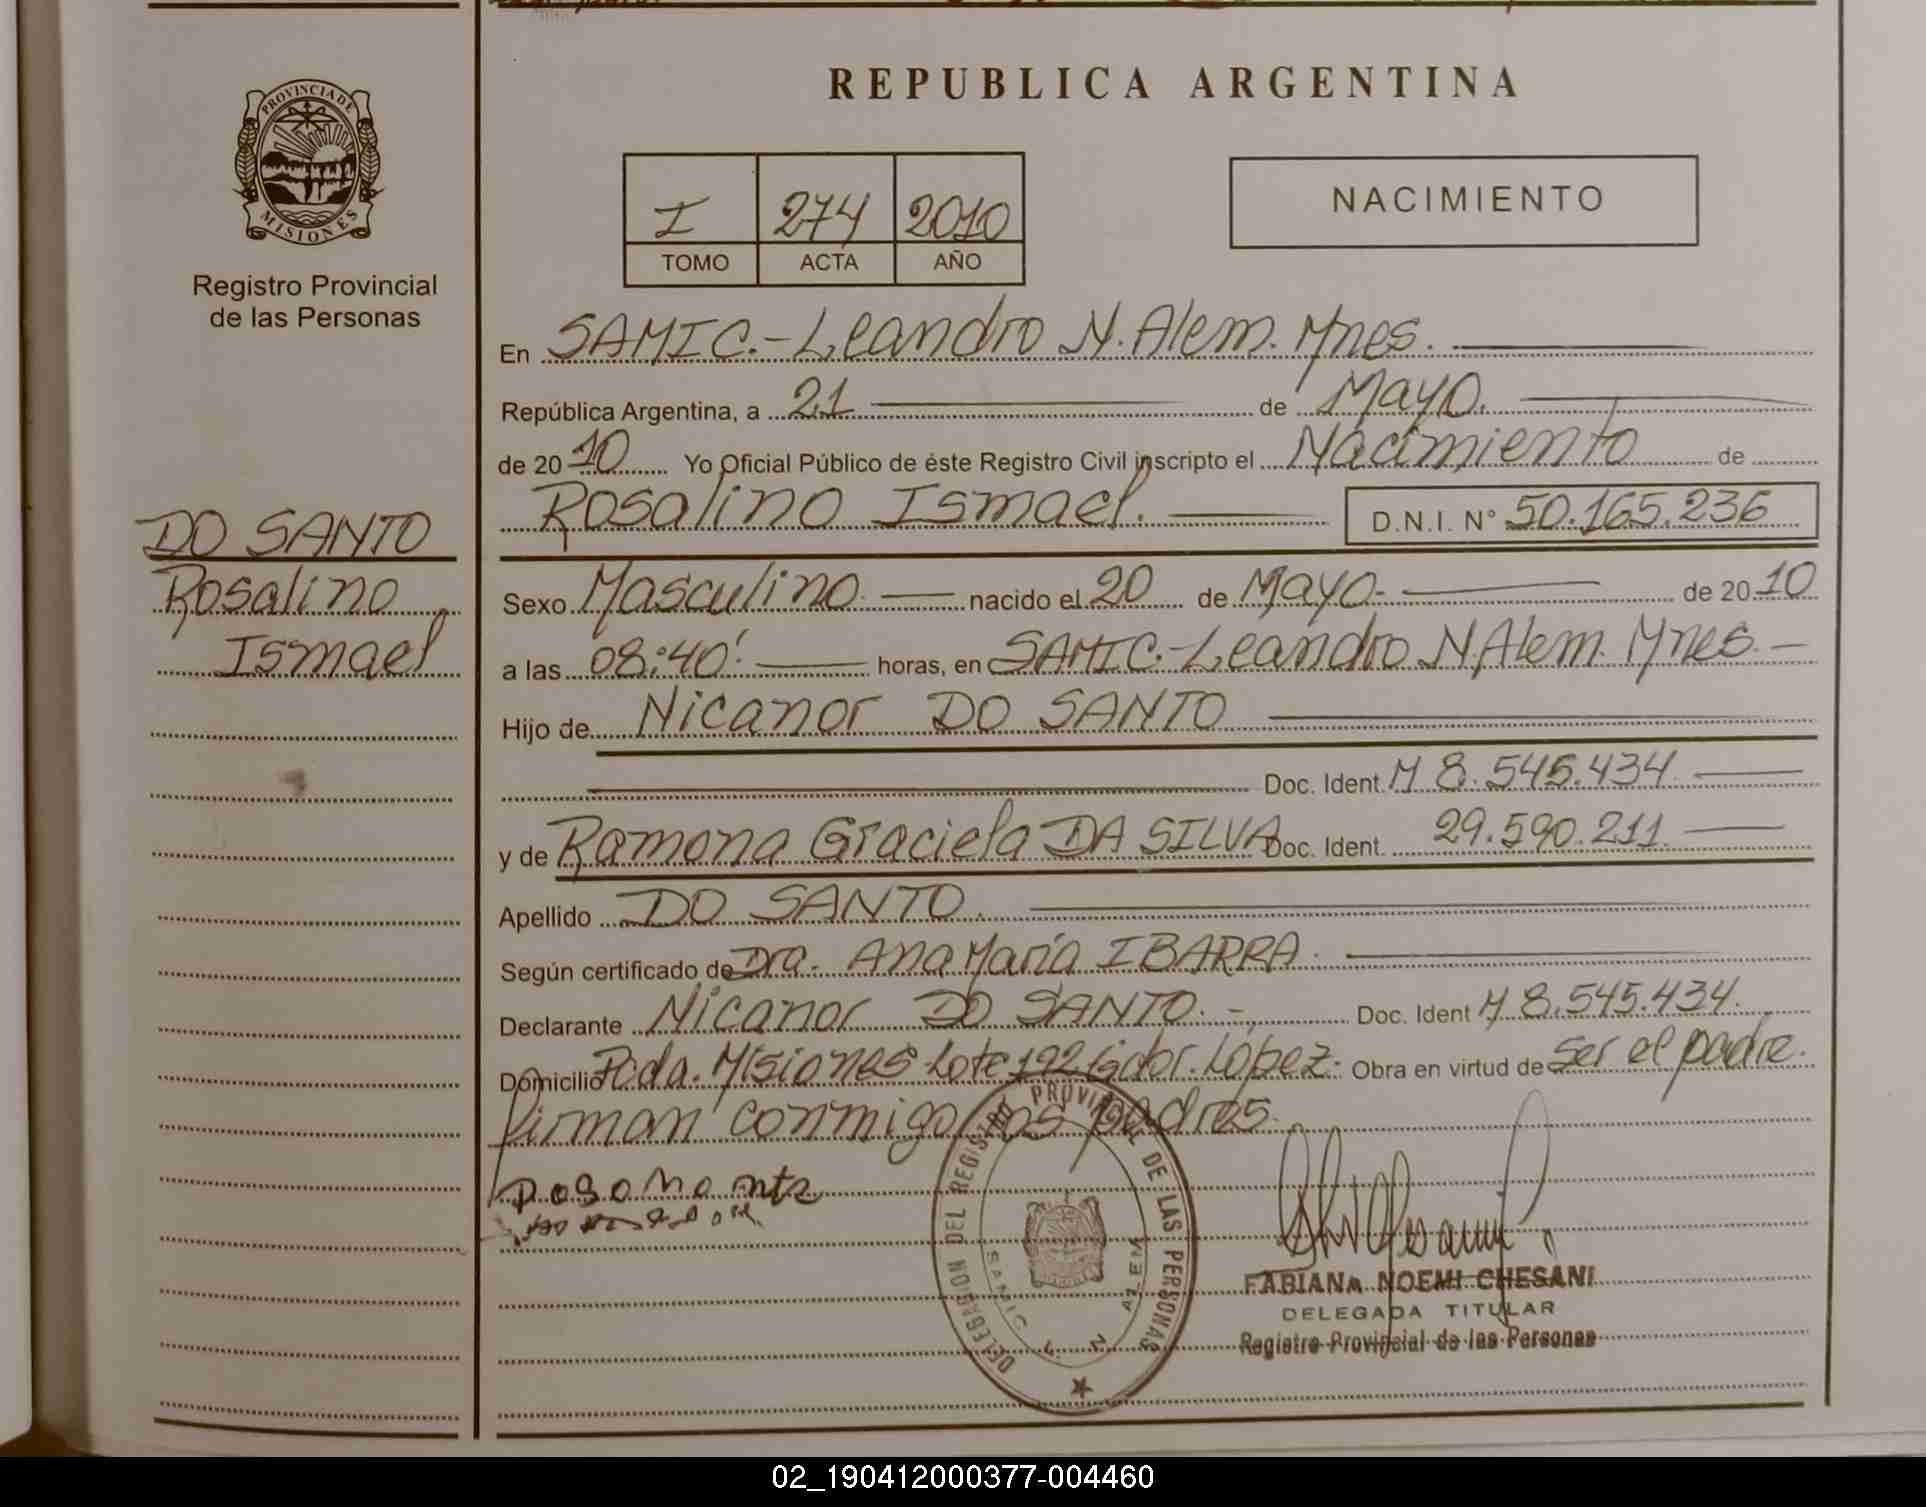 REPUBLICA ARGENTINA
PROVINCIA DE
MISIONES
Registro Provincial
de las Personas
I 274 2010
TOMO ACTA AÑO
NACIMIENTO
En SAMIC.-Leandro N. Alem. Mnes.
República Argentina, a 21 de Mayo.
de 20 10 Yo Oficial Público de éste Registro Civil inscripto el Nacimiento de
Rosalino Ismael. D.N.I. N° 50.165.236
DO SANTO
Rosalino
Ismael
Sexo Masculino nacido el 20 de Mayo- de 20 10
a las 08:40' horas, en SAMIC.-Leandro N. Alem. Mnes.-
Hijo de Nicanor DO SANTO
Doc. Ident. M 8.545.434
y de Ramona Graciela DA SILVA Doc. Ident. 29.590.211
Apellido DO SANTO.
Según certificado de Dra. Ana María IBARRA.
Declarante Nicanor DO SANTO.- Doc. Ident M 8.545.434.
Domicilio Pcda. Misiones Lote 192 Gdor. López. Obra en virtud de Ser el padre.
firman conmigo los padres.
DELEGACION DEL REGISTRO PROVINCIAL DE LAS PERSONAS
SAMIC L. N. ALEM
FABIANA NOEMI CHESANI
DELEGADA TITULAR
Registro Provincial de las Personas
02_190412000377-004460